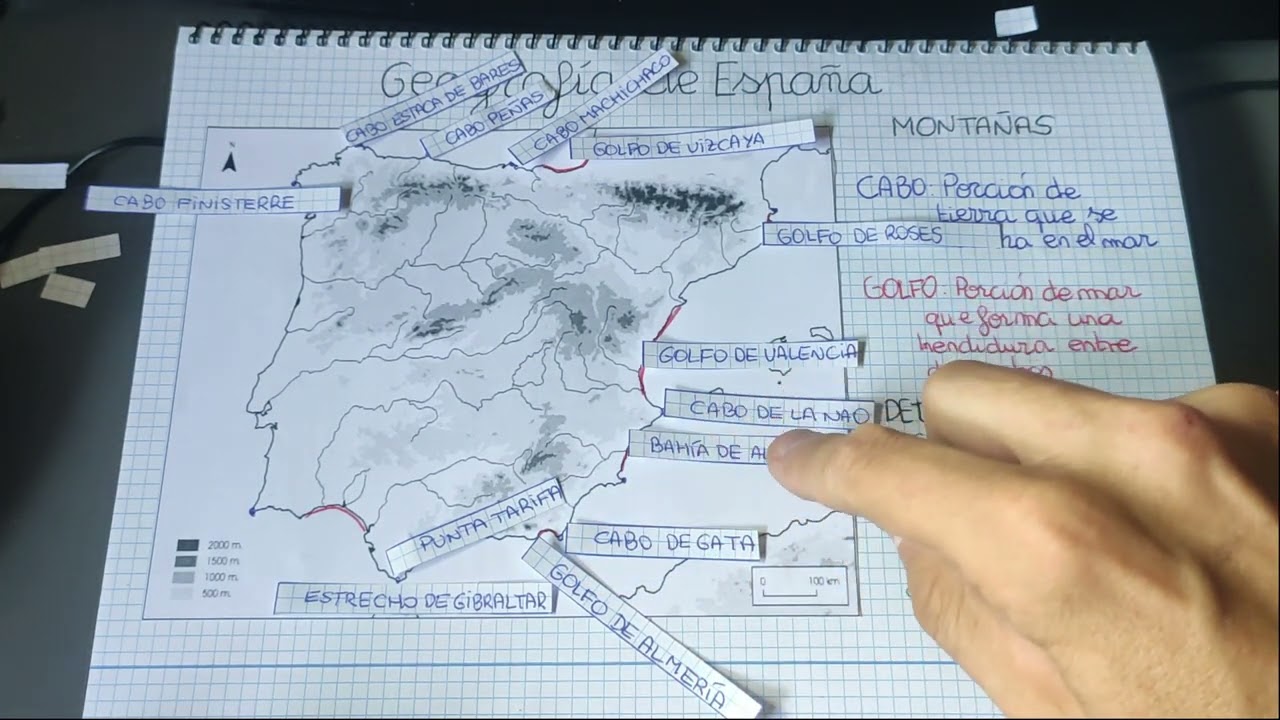 Geografía de España
CABO ESTACA DE BARES
CABO PEÑAS
CABO MACHICHACO
GOLFO DE VIZCAYA
MONTAÑAS
CABO FINISTERRE
CABO: Porción de
tierra que se
ha en el mar
GOLFO DE ROSES
GOLFO: Porción de mar
que forma una
hendidura entre
GOLFO DE VALENCIA
CABO DE LA NAO
BAHÍA DE AL
PUNTA TARIFA
CABO DE GATA
2000 m.
1500 m.
1000 m.
500 m.
0 100 km
ESTRECHO DE GIBRALTAR
GOLFO DE ALMERÍA